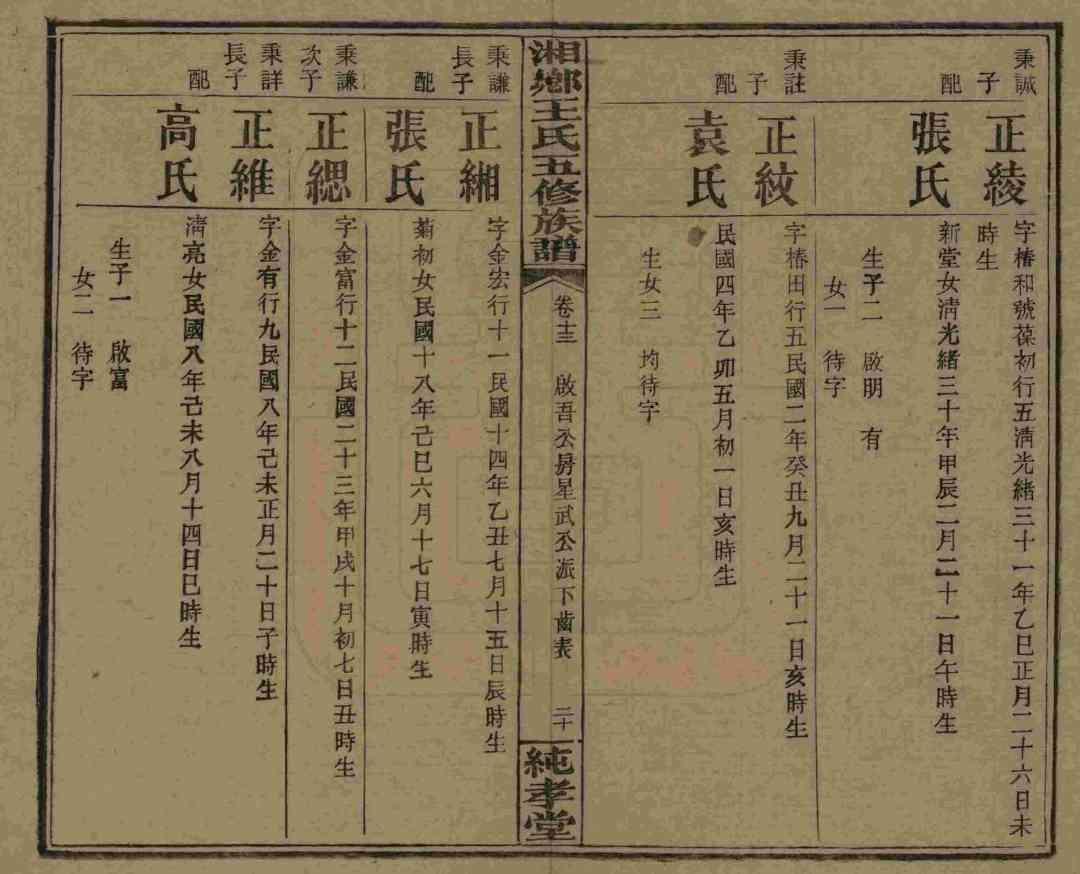 秉誠
子
正綾
字椿和號葆初行五淸光緒三十一年乙巳正月二十六日未
時生
配
張氏
新堂女淸光緒三十年甲辰二月二十一日午時生
生子二 啟明 有
女一 待字
秉註
子
正紋
字椿田行五民國二年癸丑九月二十一日亥時生
配
袁氏
民國四年乙卯五月初一日亥時生
生女三 均待字
湘鄉王氏五修族譜
卷十三 啟吾公房星武公派下齒表 二十
純孝堂
秉謙
長子
正緗
字金宏行十一民國十四年乙丑七月十五日辰時生
配
張氏
菊初女民國十八年己巳六月十七日寅時生
秉謙
次子
正緦
字金富行十二民國二十三年甲戌十月初七日丑時生
秉詳
長子
正維
字金有行九民國八年己未正月二十日子時生
配
高氏
淸亮女民國八年己未八月十四日巳時生
生子一 啟富
女二 待字